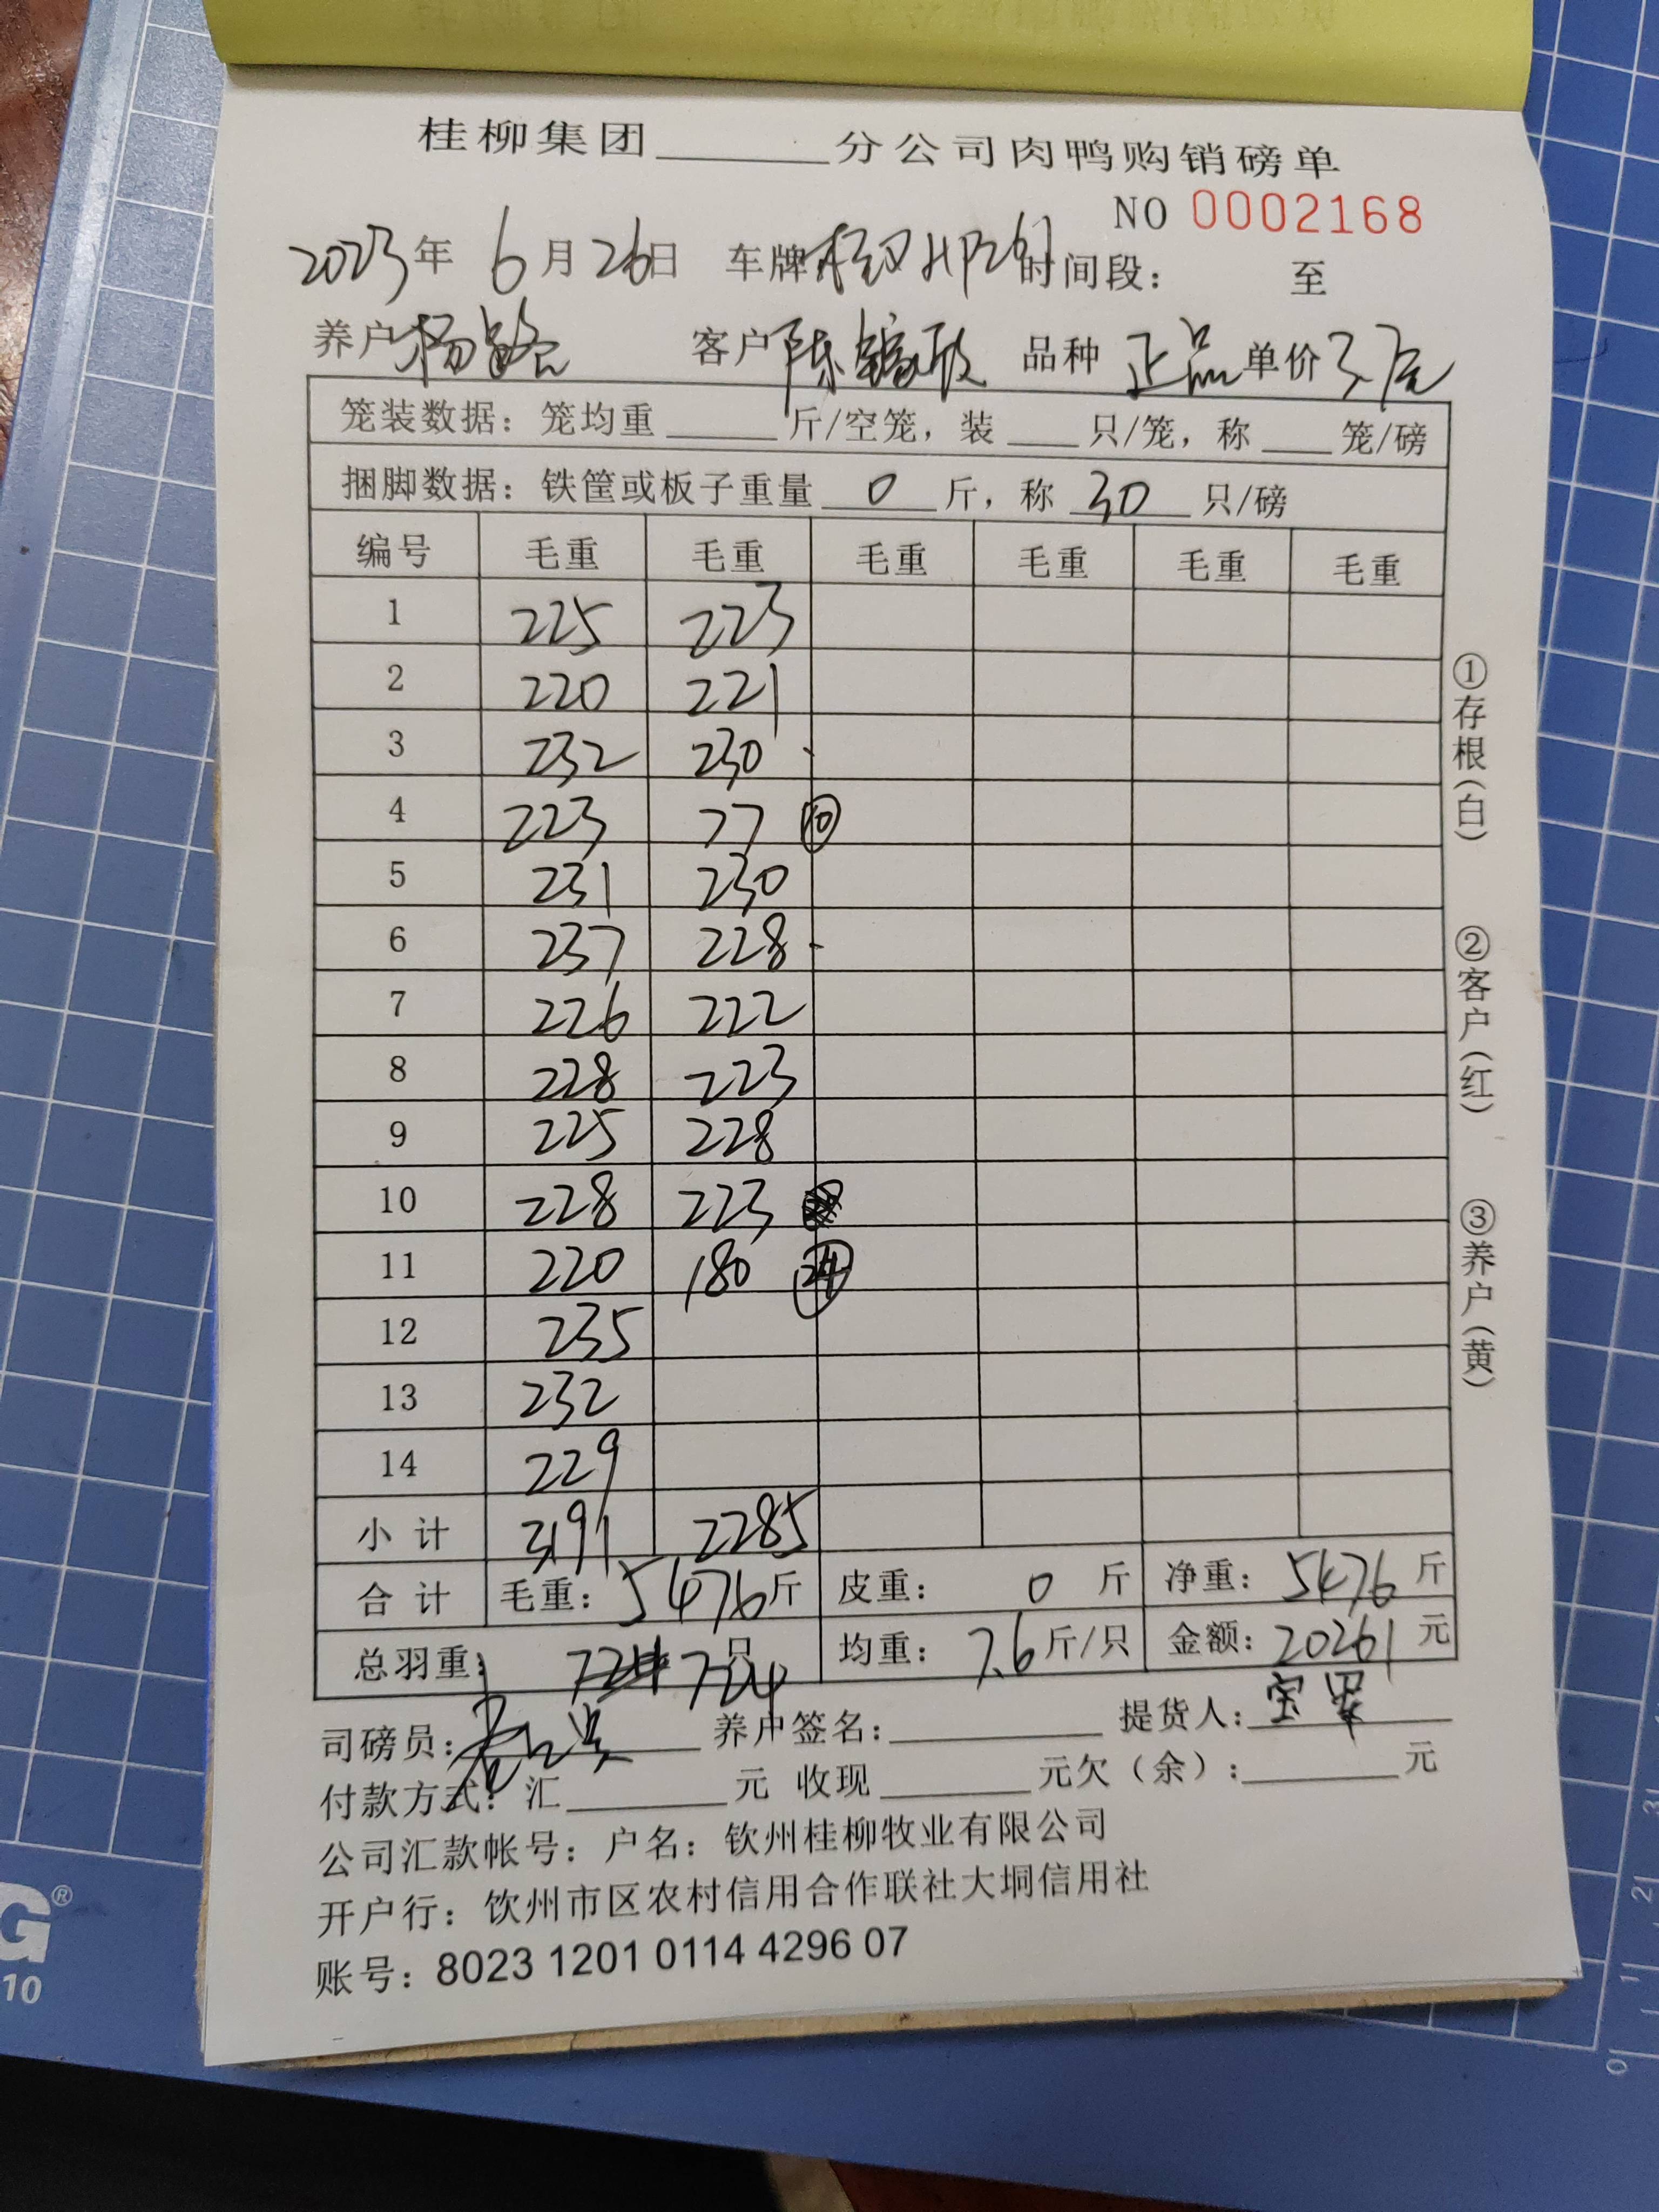 桂柳集团______分公司肉鸭购销磅单
NO 0002168
2023年 6月26日 车牌 时间段: 至
养户 杨 客户 陈 品种 正品 单价 3.7元
笼装数据: 笼均重____斤/空笼, 装___只/笼, 称___笼/磅
捆脚数据: 铁筐或板子重量 0 斤, 称 30 只/磅
编号 毛重 毛重 毛重 毛重 毛重 毛重
1 225 223
2 220 221
3 232 230
4 223 77 ⑩
5 231 230
6 237 228
7 226 222
8 228 223
9 225 228
10 228 223
11 220 180 ㉔
12 235
13 232
14 229
小计 3191 2285
合计 毛重: 5476斤 皮重: 0 斤 净重: 5476 斤
总羽重: 724 只 均重: 7.6斤/只 金额: 20261 元
司磅员: 养户签名: 提货人: 宝
付款方式: 汇______元 收现______元欠(余):______元
公司汇款帐号: 户名: 钦州桂柳牧业有限公司
开户行: 钦州市区农村信用合作联社大垌信用社
账号: 8023 1201 0114 4296 07
①存根(白)
②客户(红)
③养户(黄)
G®
10
0
1
2
3